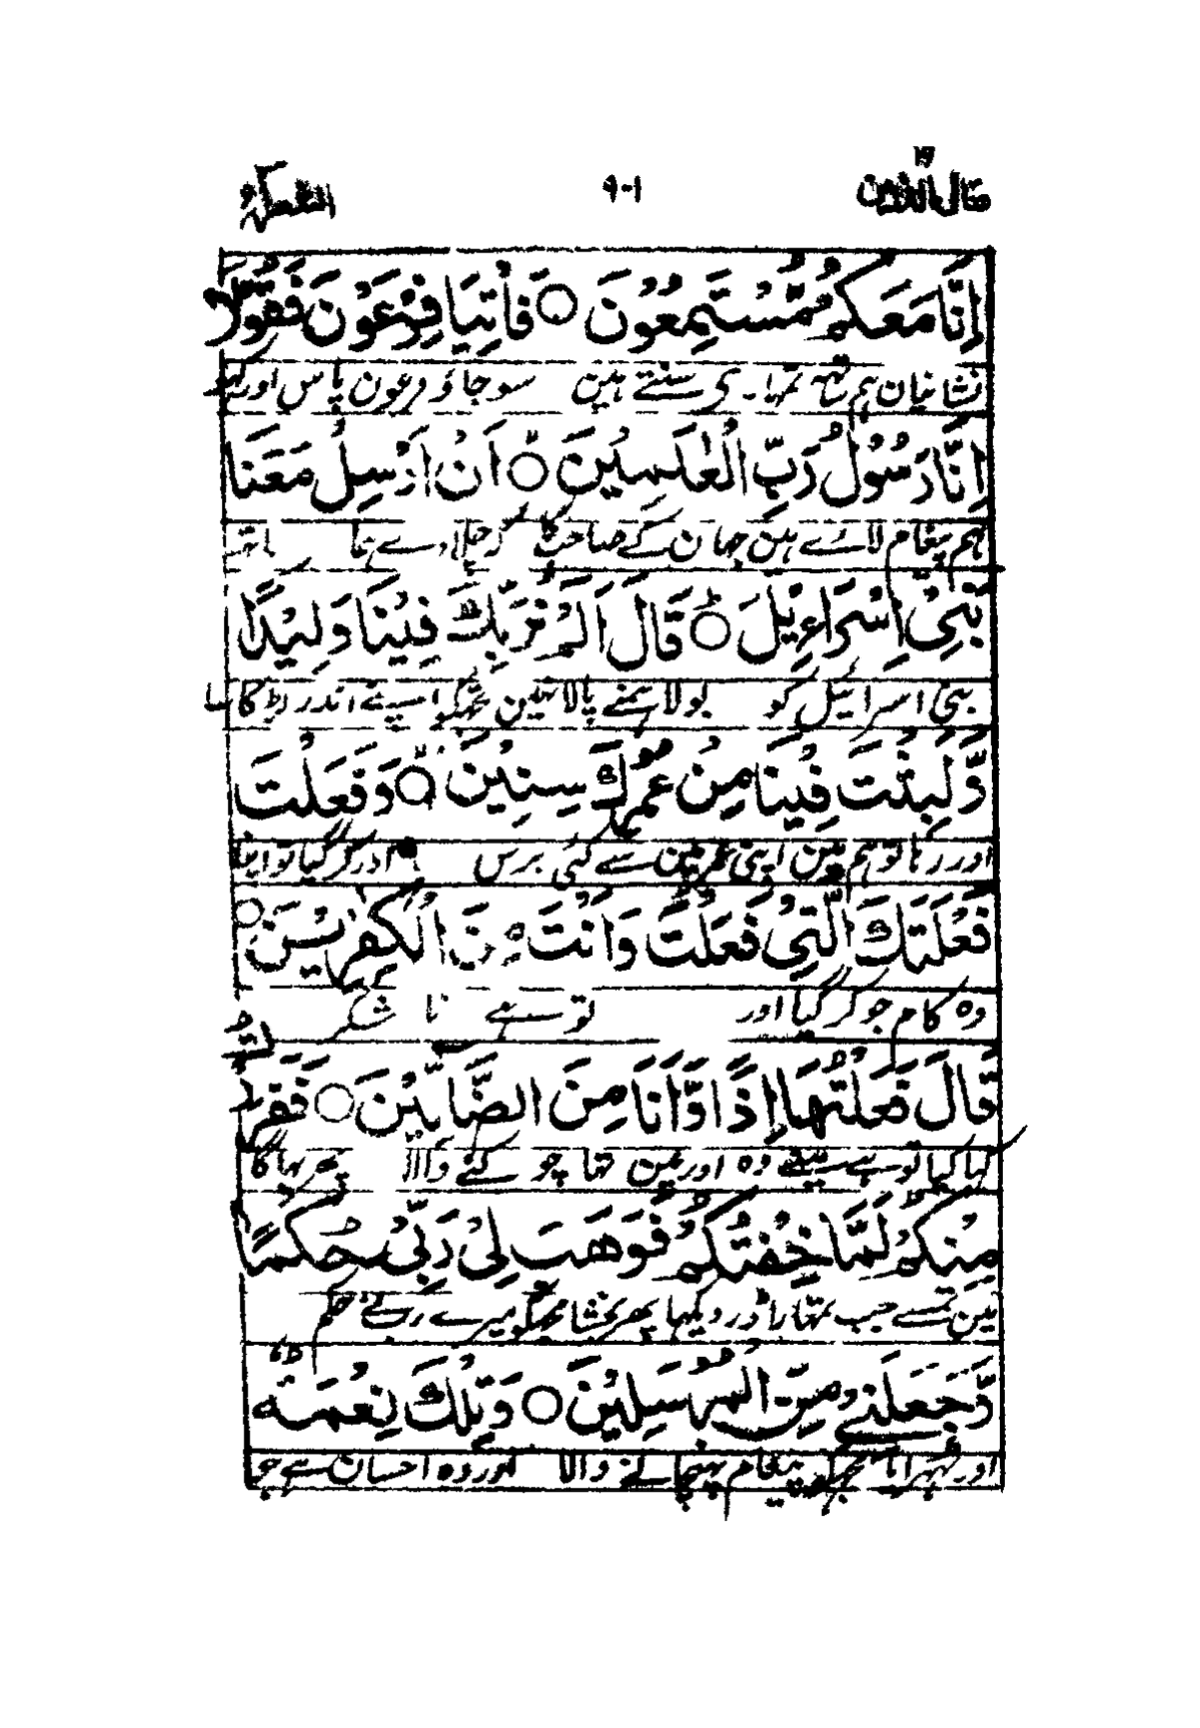 وقال الذين ١٩ ٩٠١ الشعراء
اِنَّا مَعَكُمْ مُّسْتَمِعُوْنَ ○ فَاْتِيَا فِرْعَوْنَ فَقُوْلَا
نشانیان ہم ساتھ تمہارے سنتے ہین سو جاؤ فرعون پاس اور کہو
اِنَّا رَسُوْلُ رَبِّ الْعٰلَمِيْنَ ○ اَنْ اَرْسِلْ مَعَنَا
ہم پیغام لائے ہین جہان کے صاحب کا کہ چلا دے ہمارے ساتھ
بَنِيْ اِسْرَاءِيْلَ ○ قَالَ اَلَمْ نُرَبِّكَ فِيْنَا وَلِيْدًا
بنی اسرائیل کو بولا ہمنے پالا نہین تجھکو اپنے اندر لڑکا سا
وَّلَبِثْتَ فِيْنَا مِنْ عُمُرِكَ سِنِيْنَ ○ وَفَعَلْتَ
اور رہا تو ہم مین اپنی عمر مین سے کئی برس اور کر گیا تو اپنا
فَعْلَتَكَ الَّتِيْ فَعَلْتَ وَاَنْتَ مِنَ الْكٰفِرِيْنَ ○
وہ کام جو کر گیا اور تو ہے نا شکر
قَالَ فَعَلْتُهَا اِذًا وَّاَنَا مِنَ الضَّالِّيْنَ ○ فَفَرَرْتُ
کہا کیا تو ہے مینے وہ اور مین تھا چوکنے والا پھر بہاگا
مِنْكُمْ لَمَّا خِفْتُكُمْ فَوَهَبَ لِيْ رَبِّيْ حُكْمًا
مین تمسے جب تمہارا ڈر دیکہا پھر بخشا مجھکو میرے رب نے حکم
وَّجَعَلَنِيْ مِنَ الْمُرْسَلِيْنَ ○ وَتِلْكَ نِعْمَةٌ
اور ٹھہرایا مجھکو پیغام پہنچانے والا اور وہ احسان ہے جو